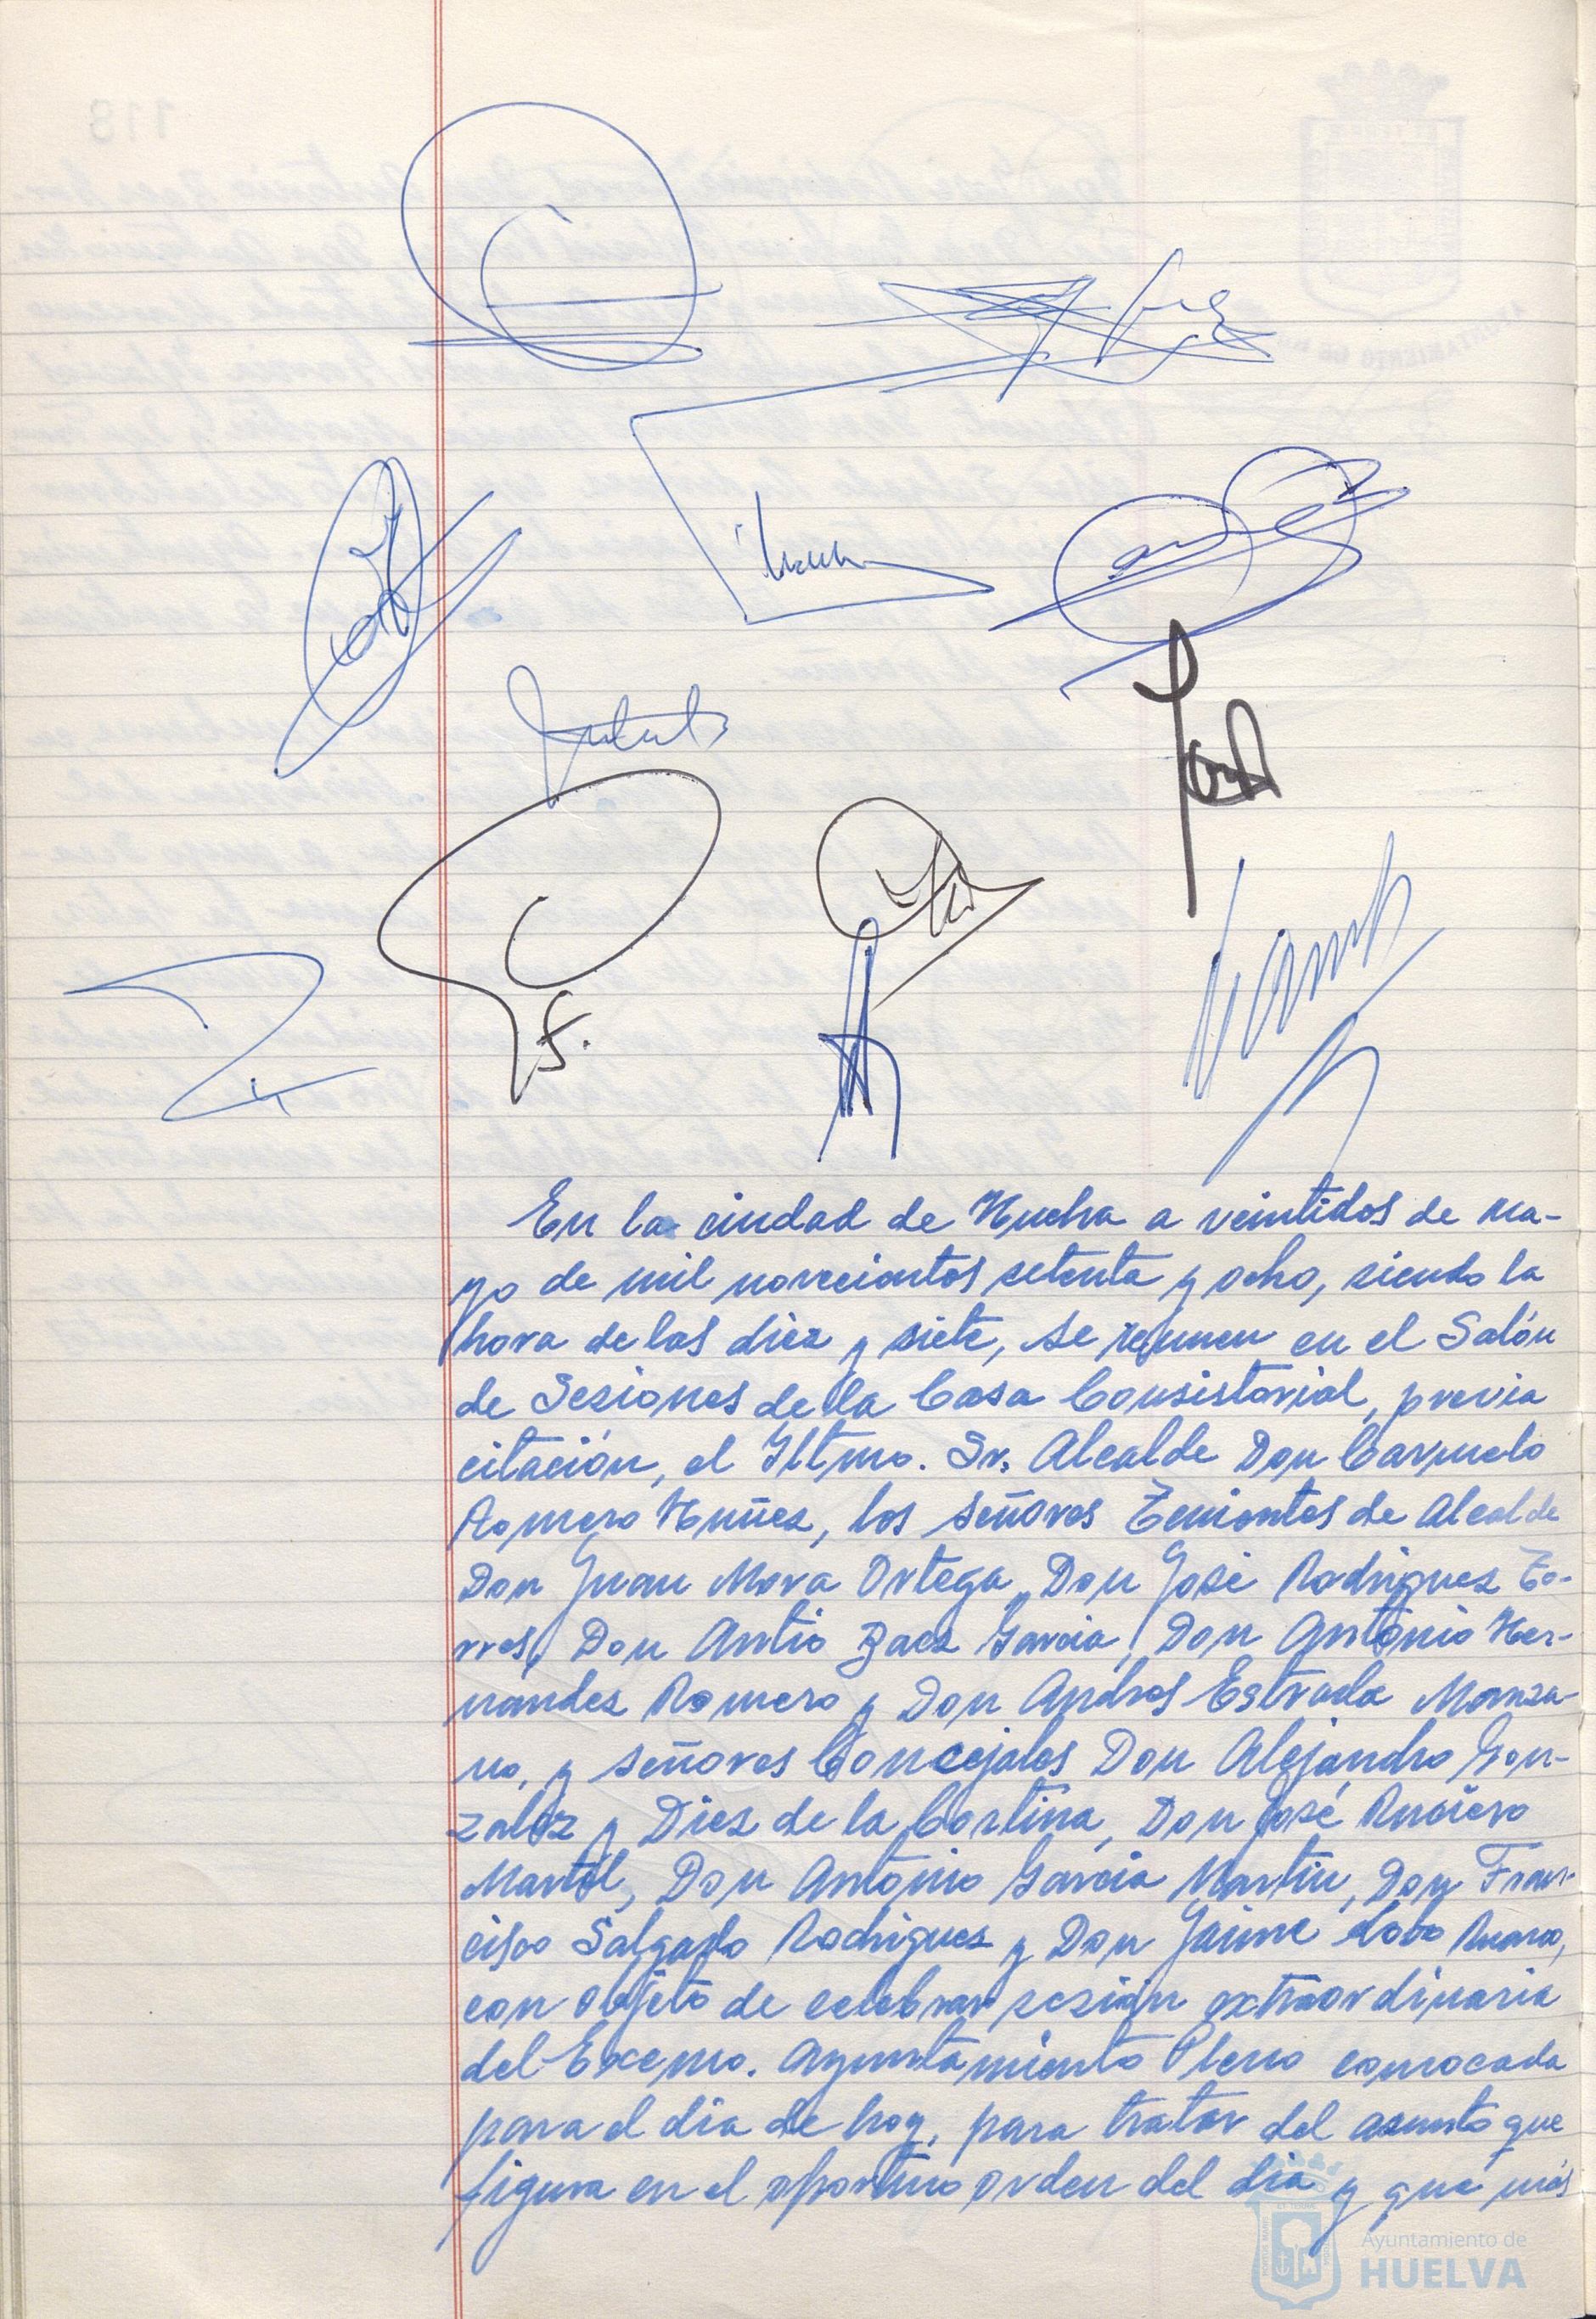 En la ciudad de Huelva a veintidos de ma-
yo de mil novecientos setenta y ocho, siendo la
hora de las diez y siete, se reunen en el Salón
de Sesiones de la Casa Consistorial, previa
citación, el Iltmo. Sr. Alcalde Don Carmelo
Romero Núñez, los señores Tenientes de Alcalde
Don Juan Mora Ortega, Don José Rodriguez To-
rres, Don Antio Baez Garcia, Don Antonio Her-
nandez Romero y Don Andres Estrada Manza-
no, y señores Concejales Don Alejandro Gon-
zalez y Diez de la Cortina, Don José
Martel, Don Antonio Garcia Martin, Don Fran-
cisco Salgado Rodriguez y Don Jaime Lobo
con objeto de celebrar sesión extraordinaria
del Excemo. Ayuntamiento Pleno convocada
para el dia de hoy, para tratar del asunto que
figura en el oportuno orden del dia y que más
Ayuntamiento de
HUELVA